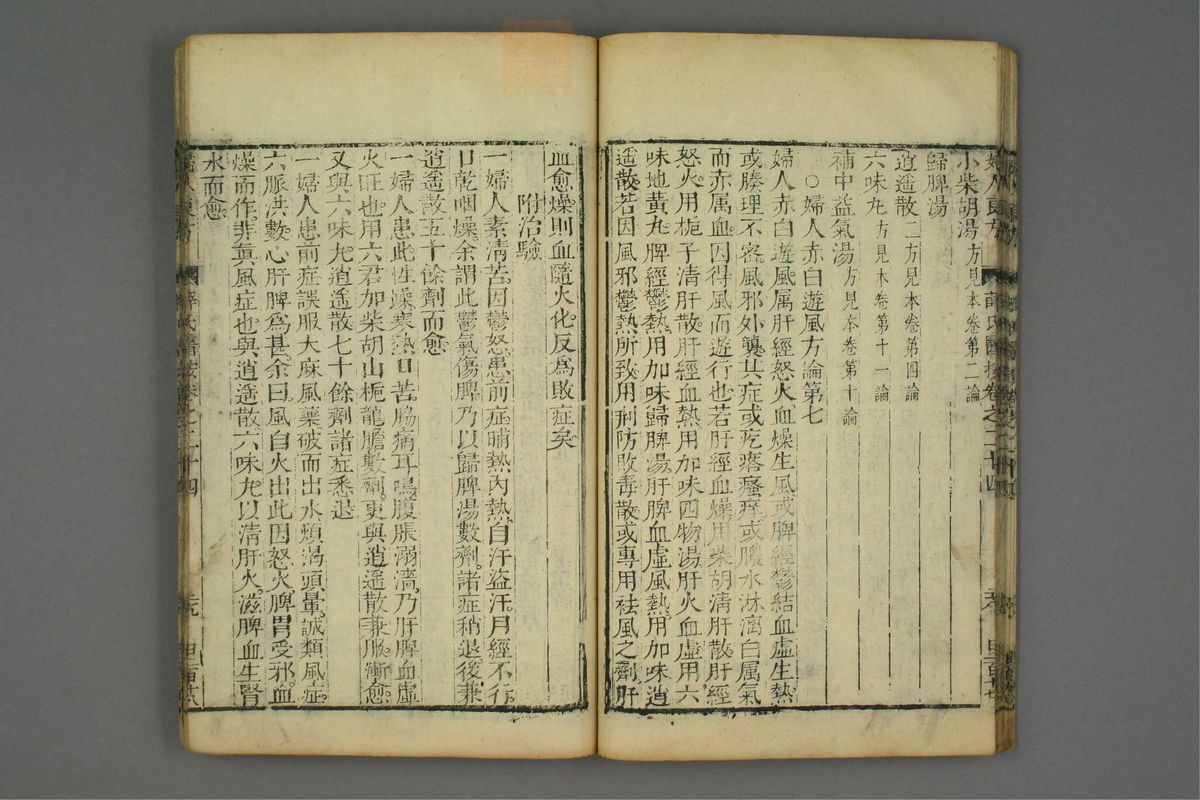 小柴胡湯方見本卷第二論
歸脾湯
逍遥散二方見本卷第四論
六味丸方見本卷第十一論
補中益氣湯方見本卷第十論
○婦人赤白遊風方論第七
婦人赤白遊風属肝經怒火血燥生風或脾經鬱結血虛生熱
或腠理不密風邪外襲其症或疙瘩瘙痒或膿水淋漓白属氣
而赤属血因得風而遊行也若肝經血燥用柴胡清肝散肝經
怒火用梔子清肝散肝經血熱用加味四物湯肝火血虛用六
味地黃丸脾經鬱熱用加味歸脾湯肝脾血虛風熱用加味逍
遥散若因風邪鬱熱所致用荊防敗毒散或專用祛風之劑肝
血愈燥則血隨火化反爲敗症矣
附治驗
一婦人素清苦因鬱怒患前症晡熱內熱自汗盜汗月經不行
口乾咽燥余謂此鬱氣傷脾乃以歸脾湯數劑諸症稍退後兼
逍遥散五十餘劑而愈
一婦人患此性躁寒熱口苦脇痛耳鳴腹脹溺濇乃肝脾血虛
火旺也用六君加柴胡山梔龍膽數劑更與逍遥散兼服漸愈
又與六味丸逍遥散七十餘劑諸症悉退
一婦人患前症誤服大麻風藥破而出水煩渴頭暈誠類風症
六脈洪數心肝脾爲甚余曰風自火出此因怒火脾胃受邪血
燥而作非眞風症也與逍遥散六味丸以清肝火滋脾血生腎
水而愈